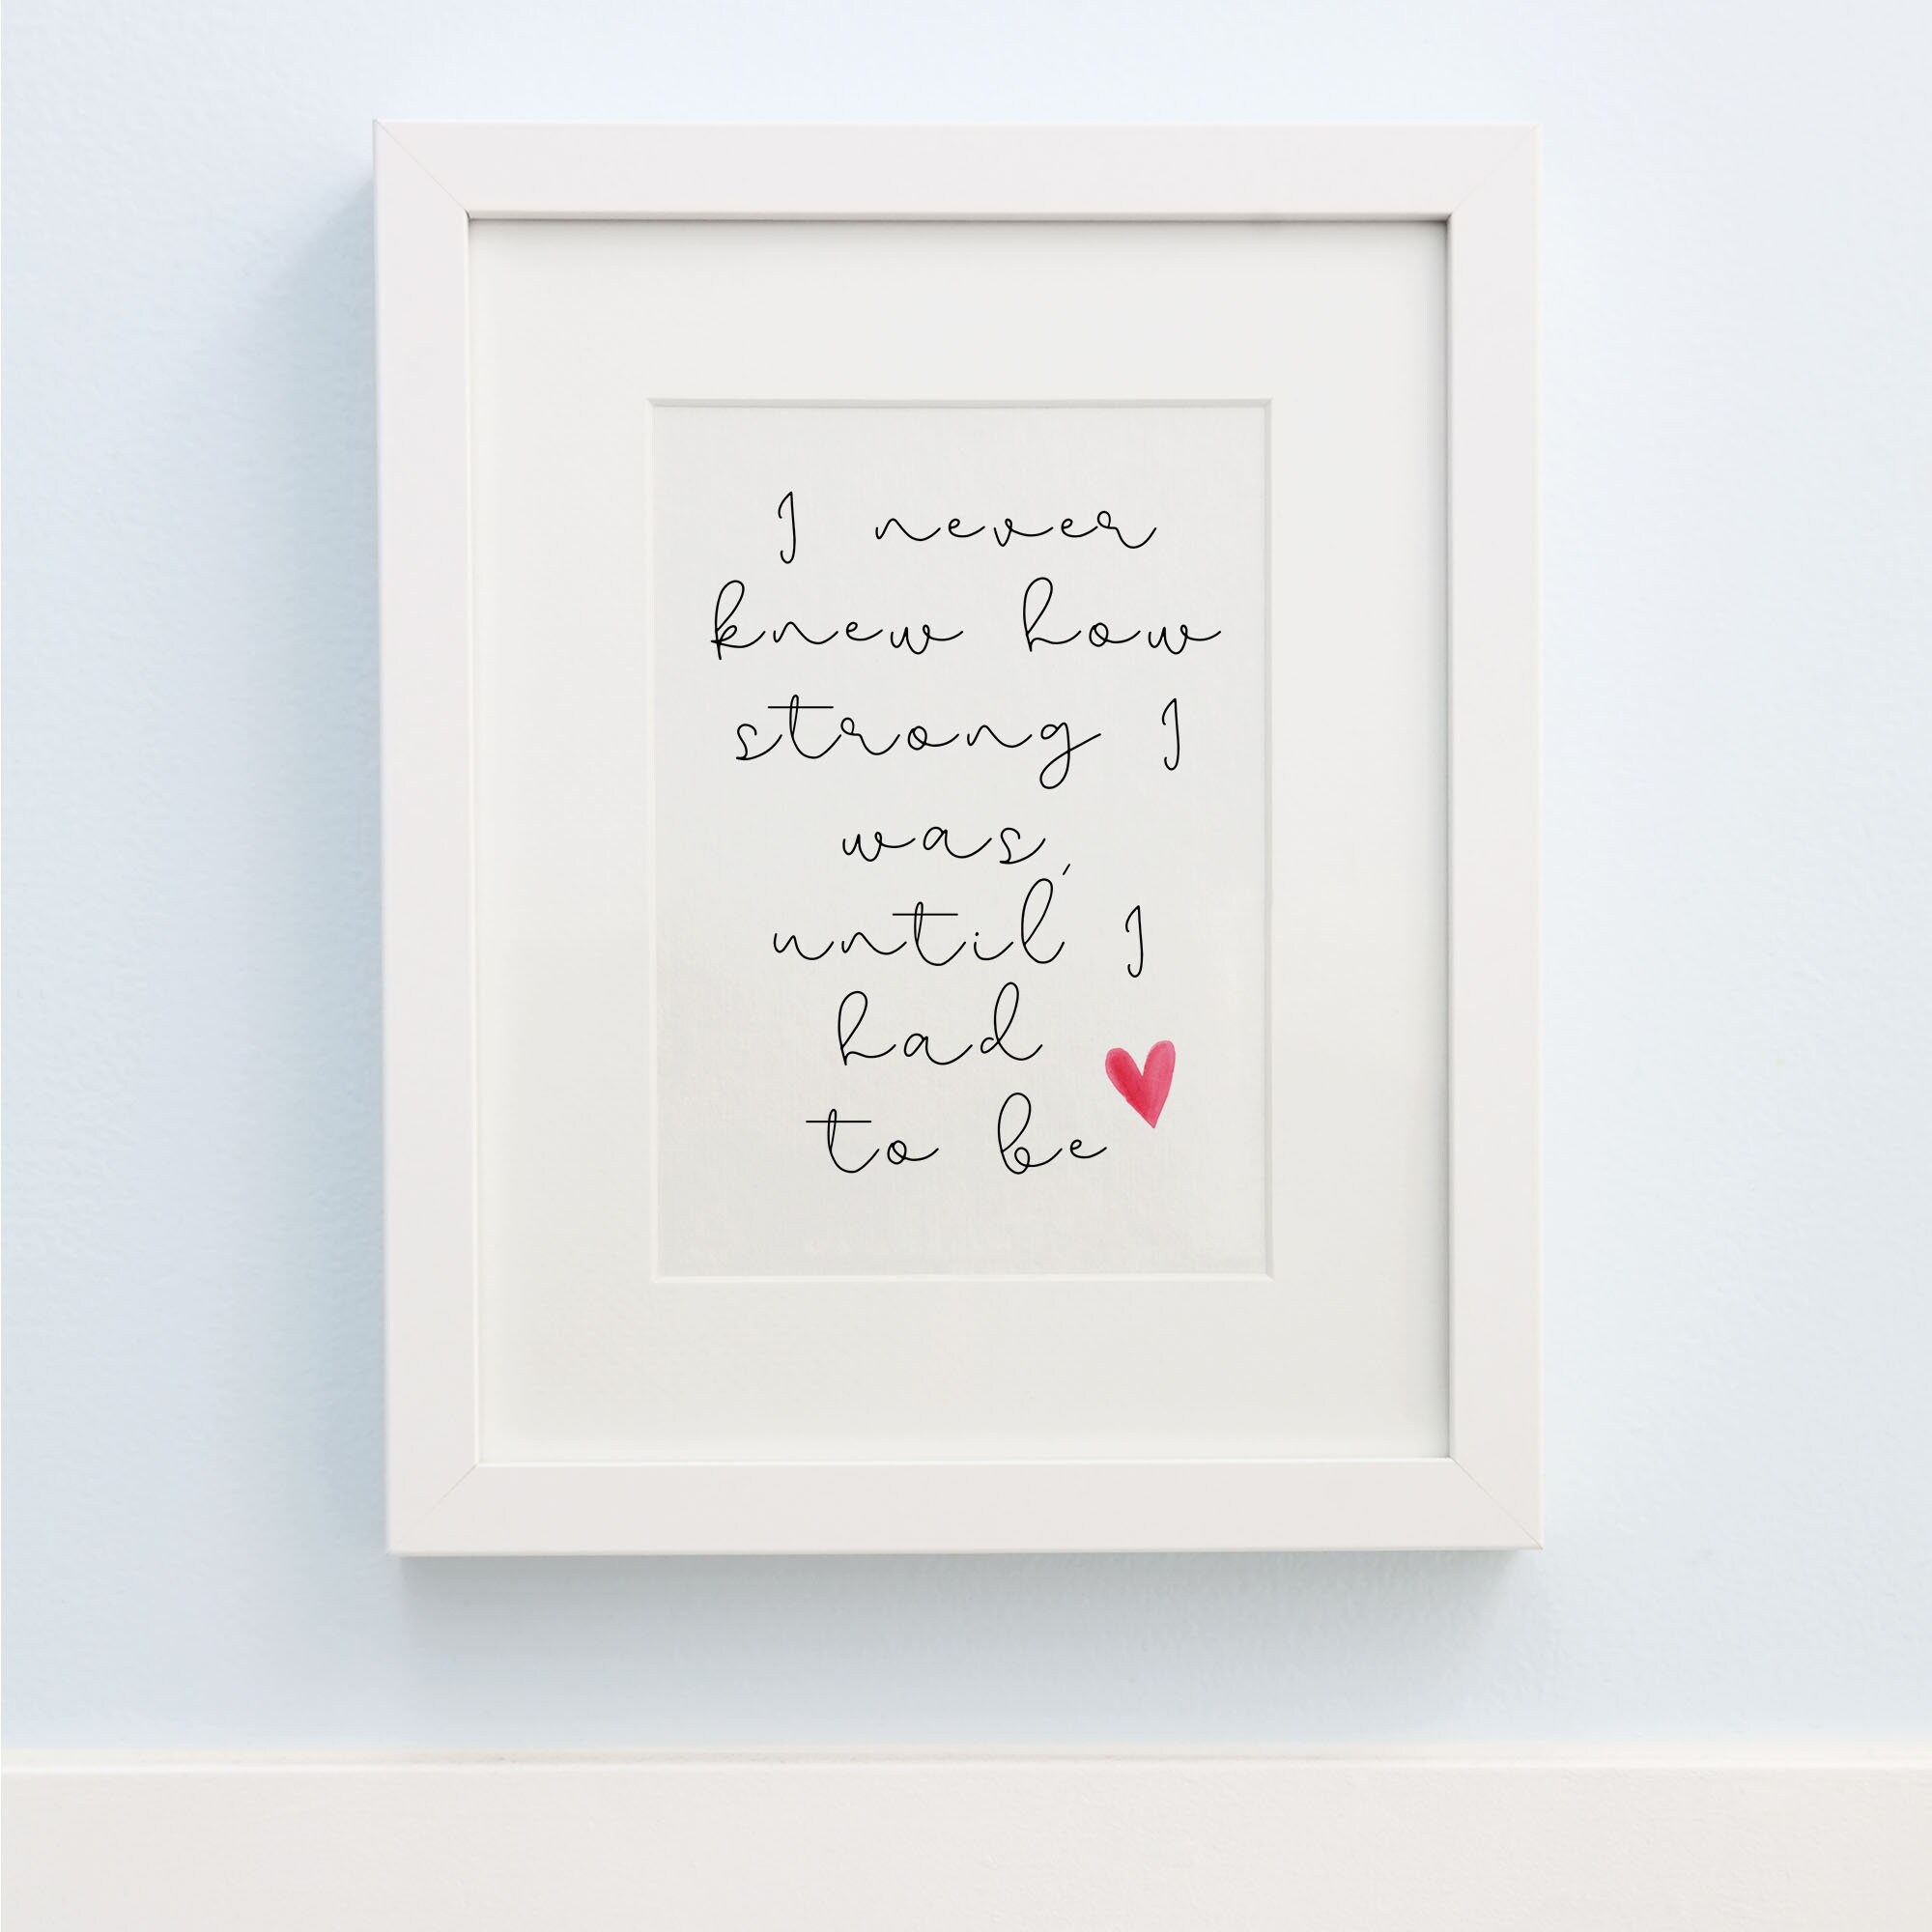 I never
knew how
strong I
was,
until I
had
to be